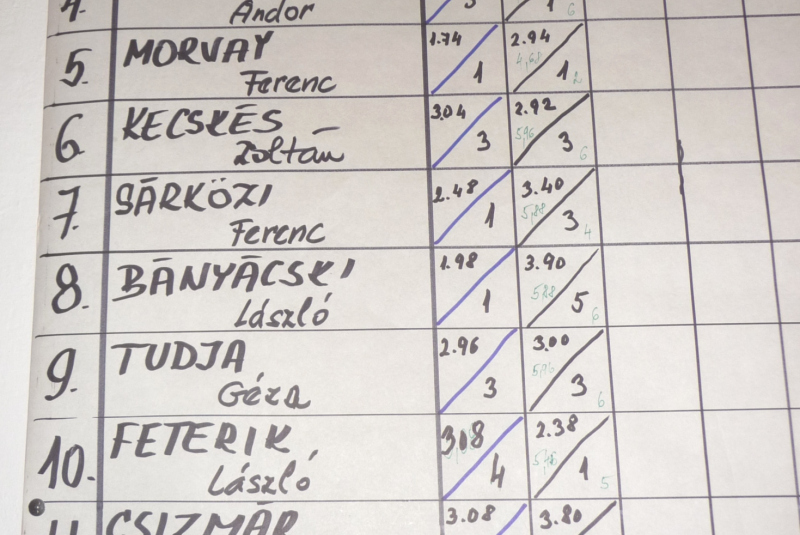 4. Andor 1 6
5. MORVAY 1.74 2.94
Ferenc 1 4,68 1 2
6. KECSKÉS 3.04 2.92
Zoltán 3 5,96 3 6
7. SÁRKÖZI 2.48 3.40
Ferenc 1 5,88 3 4
8. BÁNYÁCSKI 1.98 3.90
László 1 5,88 5 6
9. TUDJA 2.96 3.00
Géza 3 5,96 3 6
10. FETERIK 3.18 2.38
László 4 1 5
11. CSIZMÁR 3.08 3.80